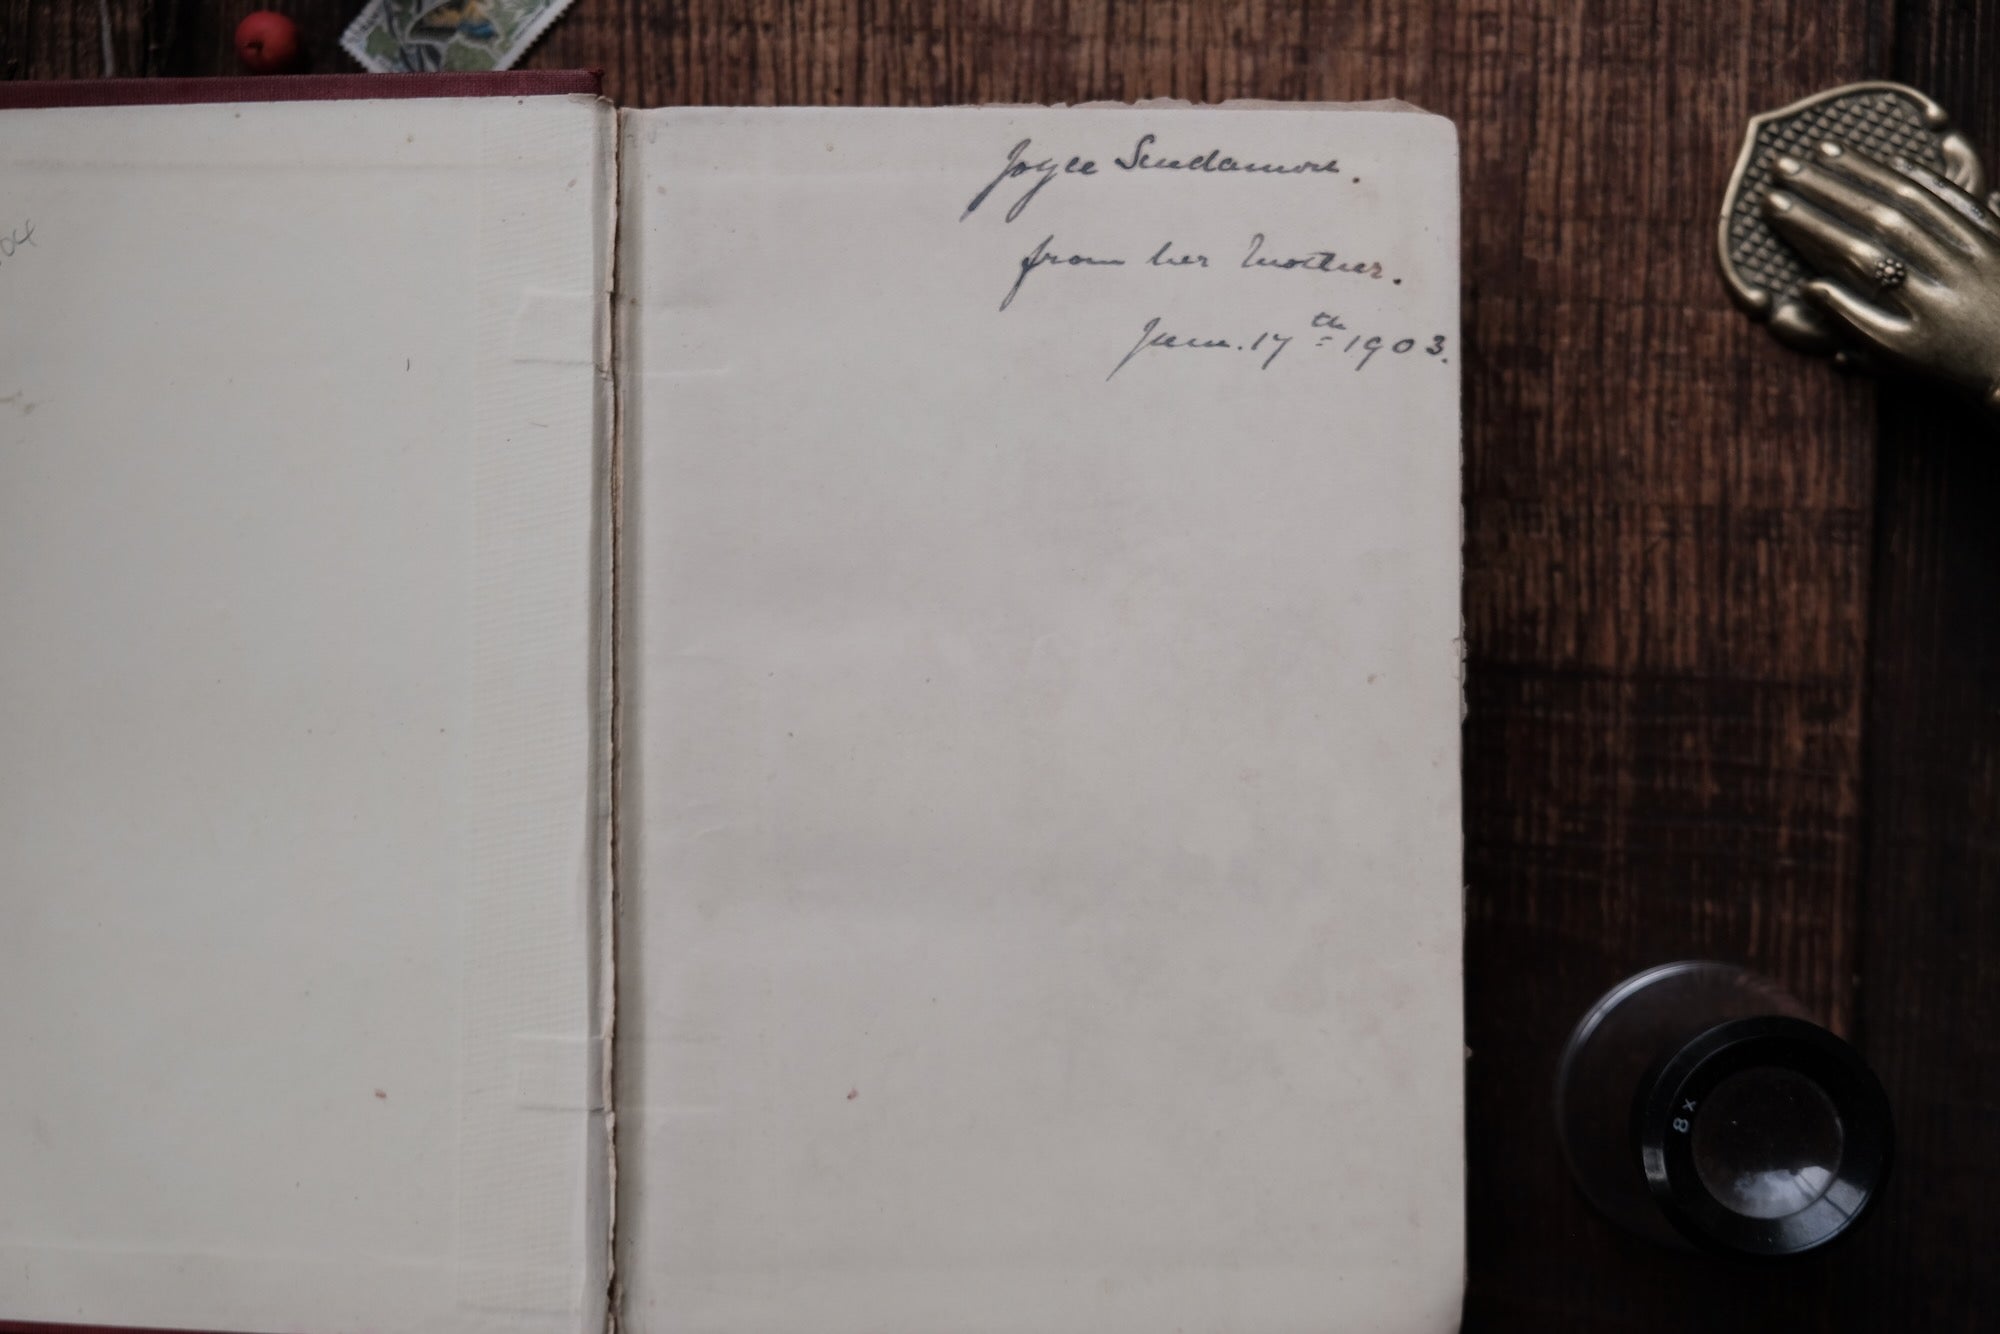 Joyce Scudamore.
from her Mother.
June. 17th 1903.
8x